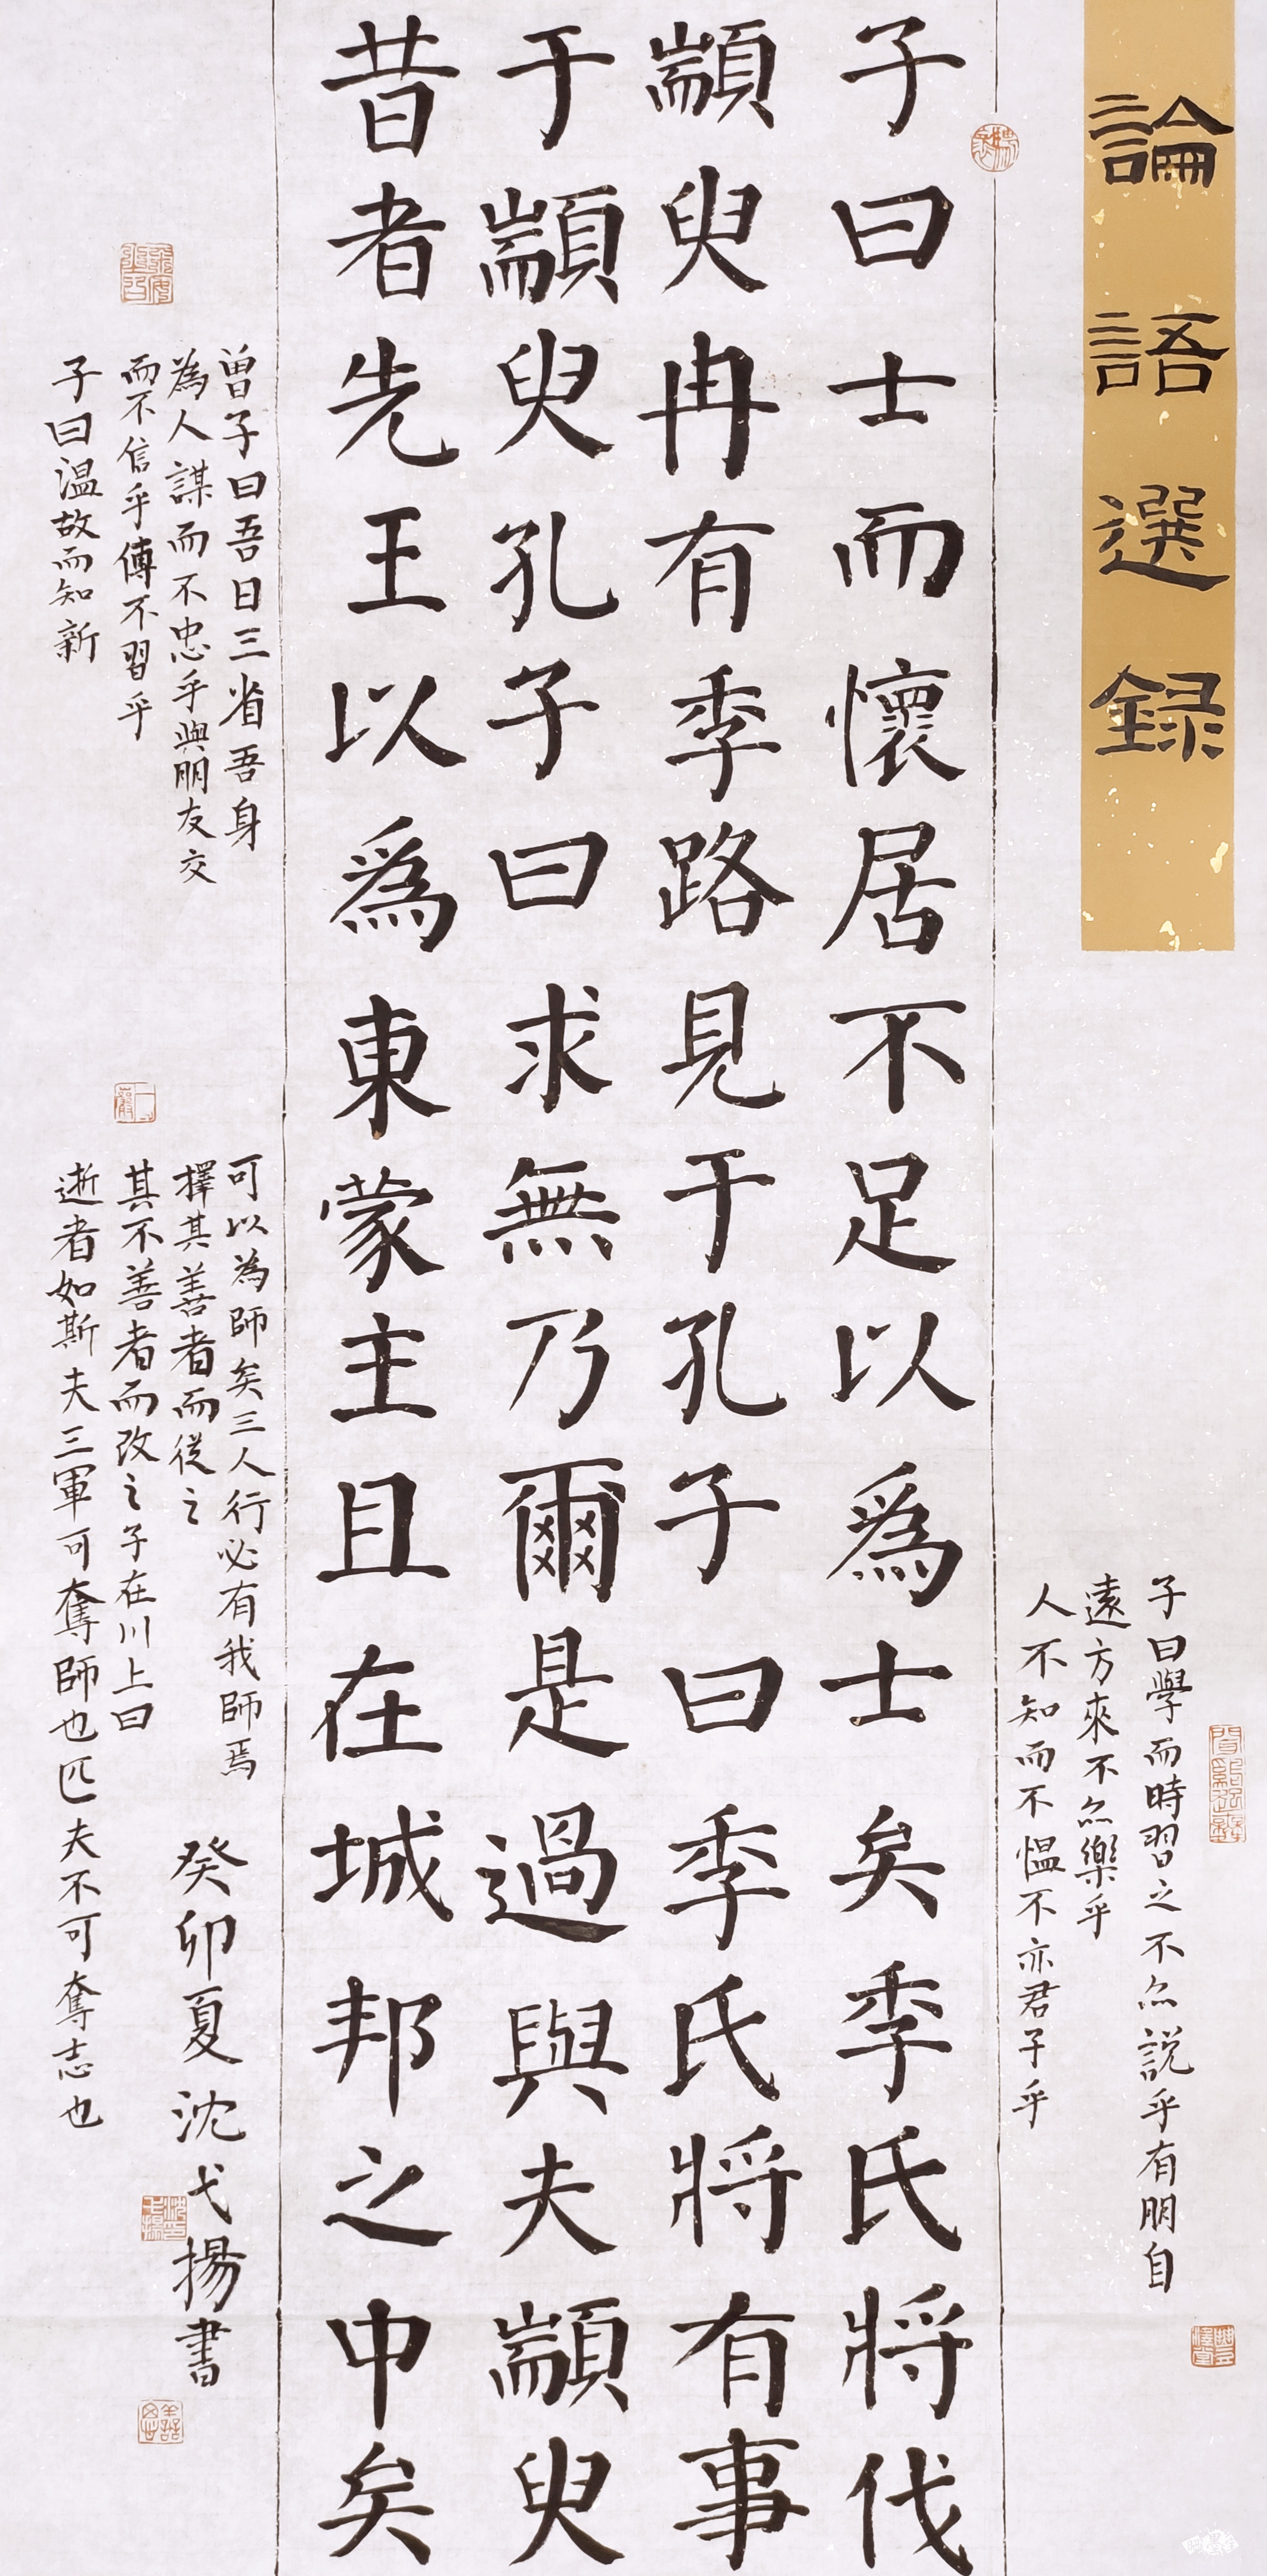 論語選錄
子曰學而時習之不亦說乎有朋自
遠方來不亦樂乎
人不知而不愠不亦君子乎
子曰士而懷居不足以爲士矣季氏將伐
顓臾冉有季路見于孔子曰季氏將有事
于顓臾孔子曰求無乃爾是過與夫顓臾
昔者先王以爲東蒙主且在城邦之中矣
曾子曰吾日三省吾身
為人謀而不忠乎與朋友交
而不信乎傳不習乎
子曰温故而知新
可以為師矣三人行必有我師焉
擇其善者而從之
其不善者而改之子在川上曰
逝者如斯夫三軍可奪師也匹夫不可奪志也
癸卯夏沈弋揚書